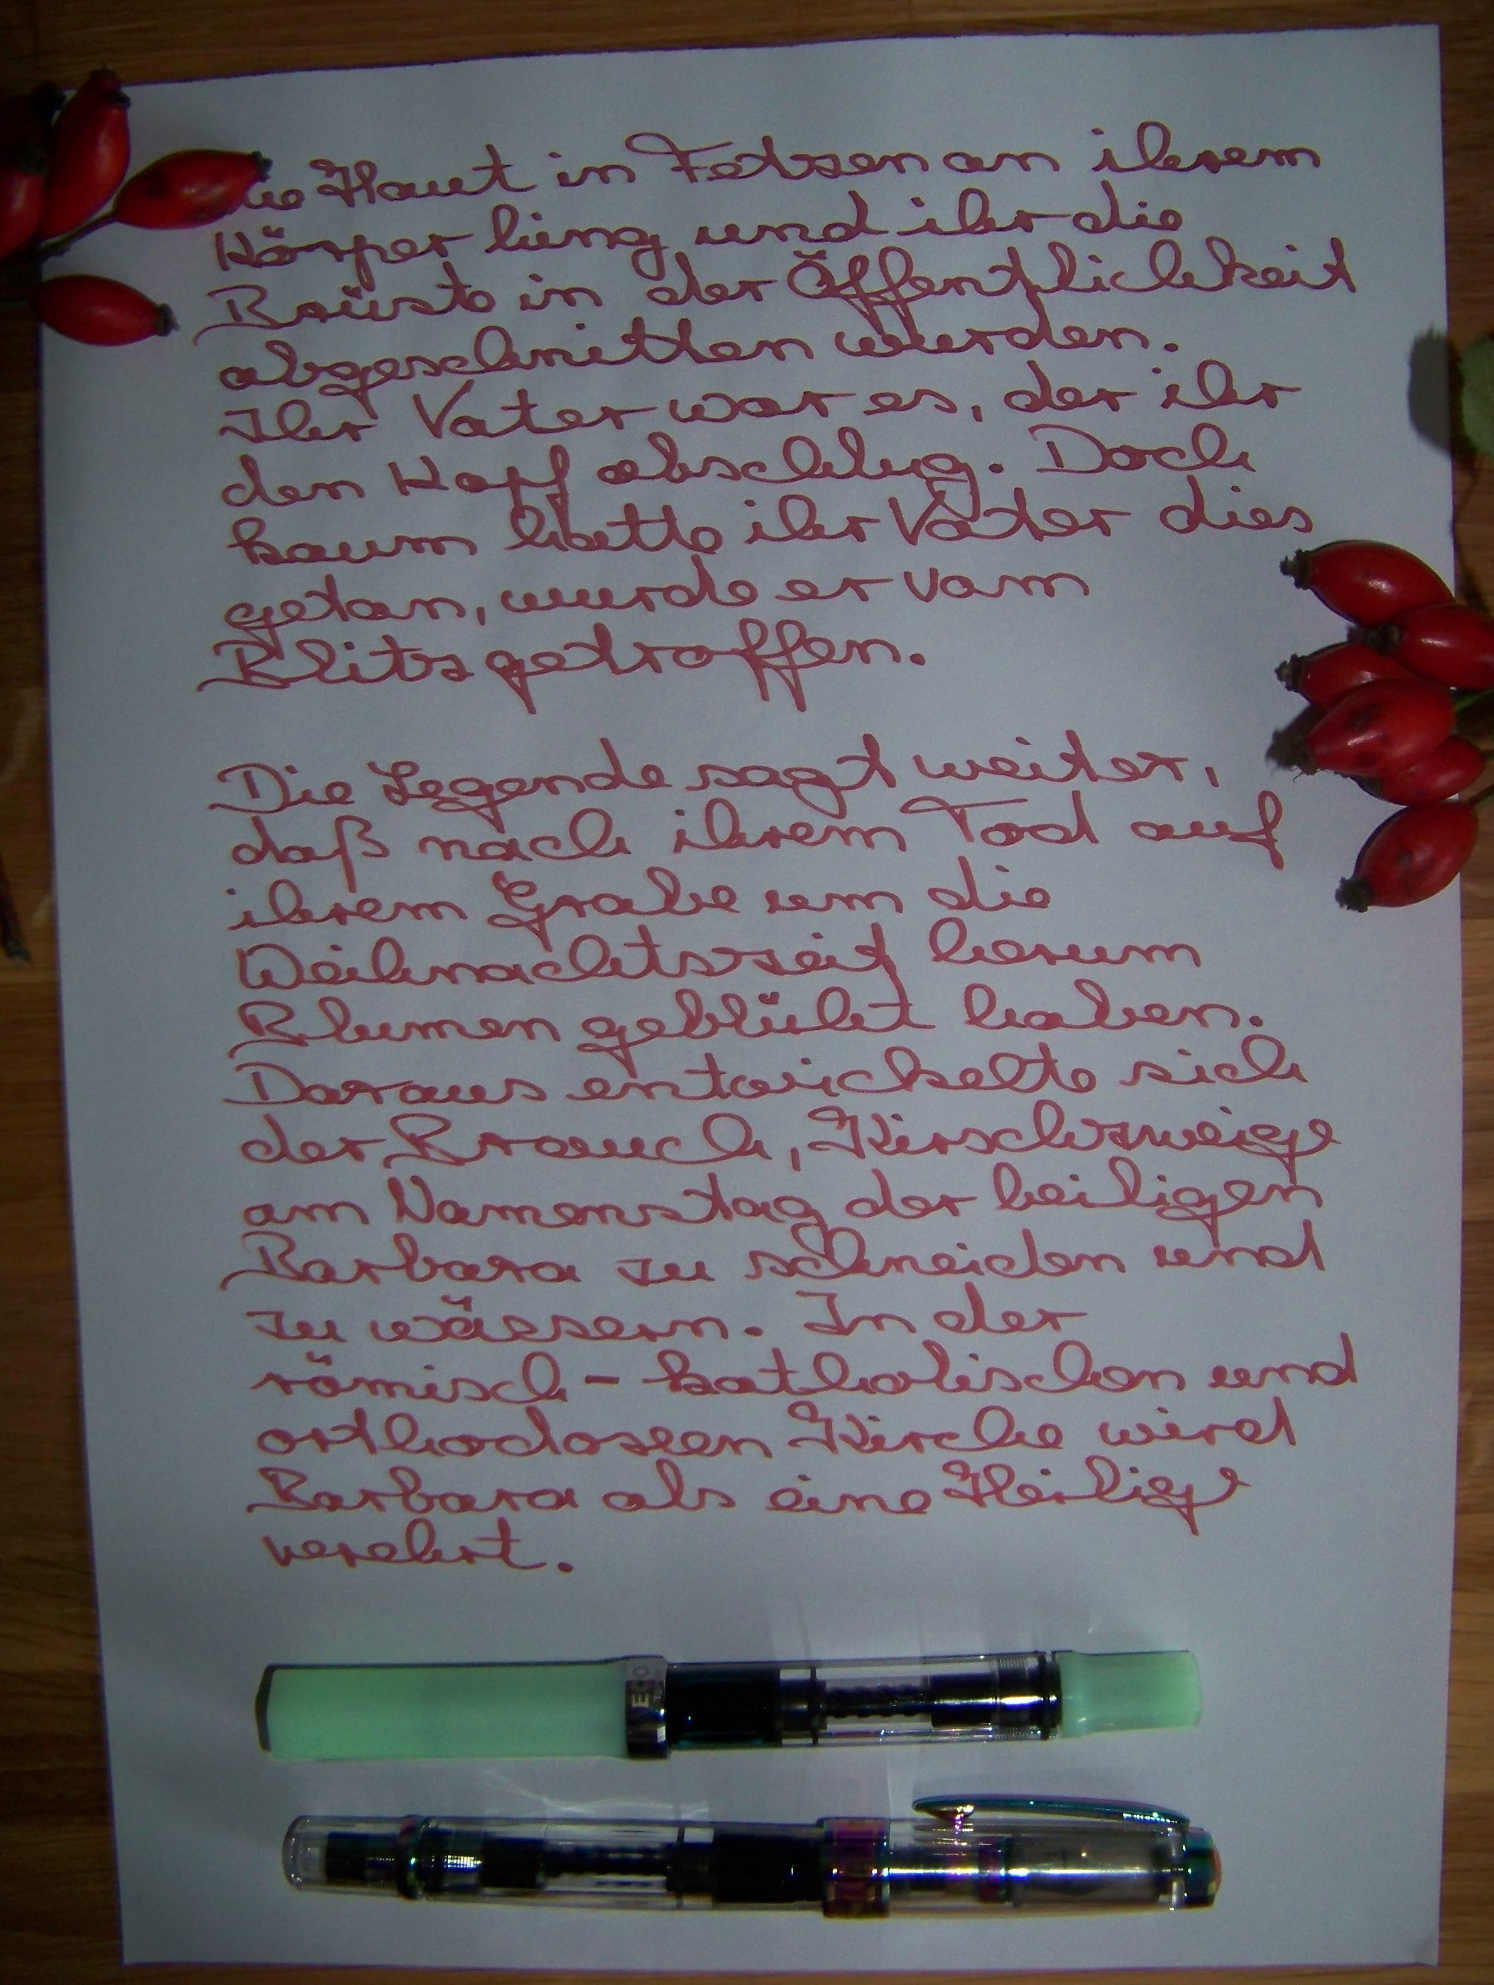 die Haut in Fetzen an ihrem
Körper hing und ihr die
Brüste in der Öffentlichkeit
abgeschnitten wurden.
Ihr Vater war es, der ihr
den Kopf abschlug. Doch
kaum hatte ihr Vater dies
getan, wurde er vom
Blitz getroffen.
Die Legende sagt weiter,
daß nach ihrem Tod auf
ihrem Grabe um die
Weihnachtszeit herum
Blumen geblüht haben.
Daraus entwickelte sich
der Brauch, Kirschzweige
am Namenstag der heiligen
Barbara zu schneiden und
zu wässern. In der
römisch-katholischen und
orthodoxen Kirche wird
Barbara als eine Heilige
verehrt.
ECO